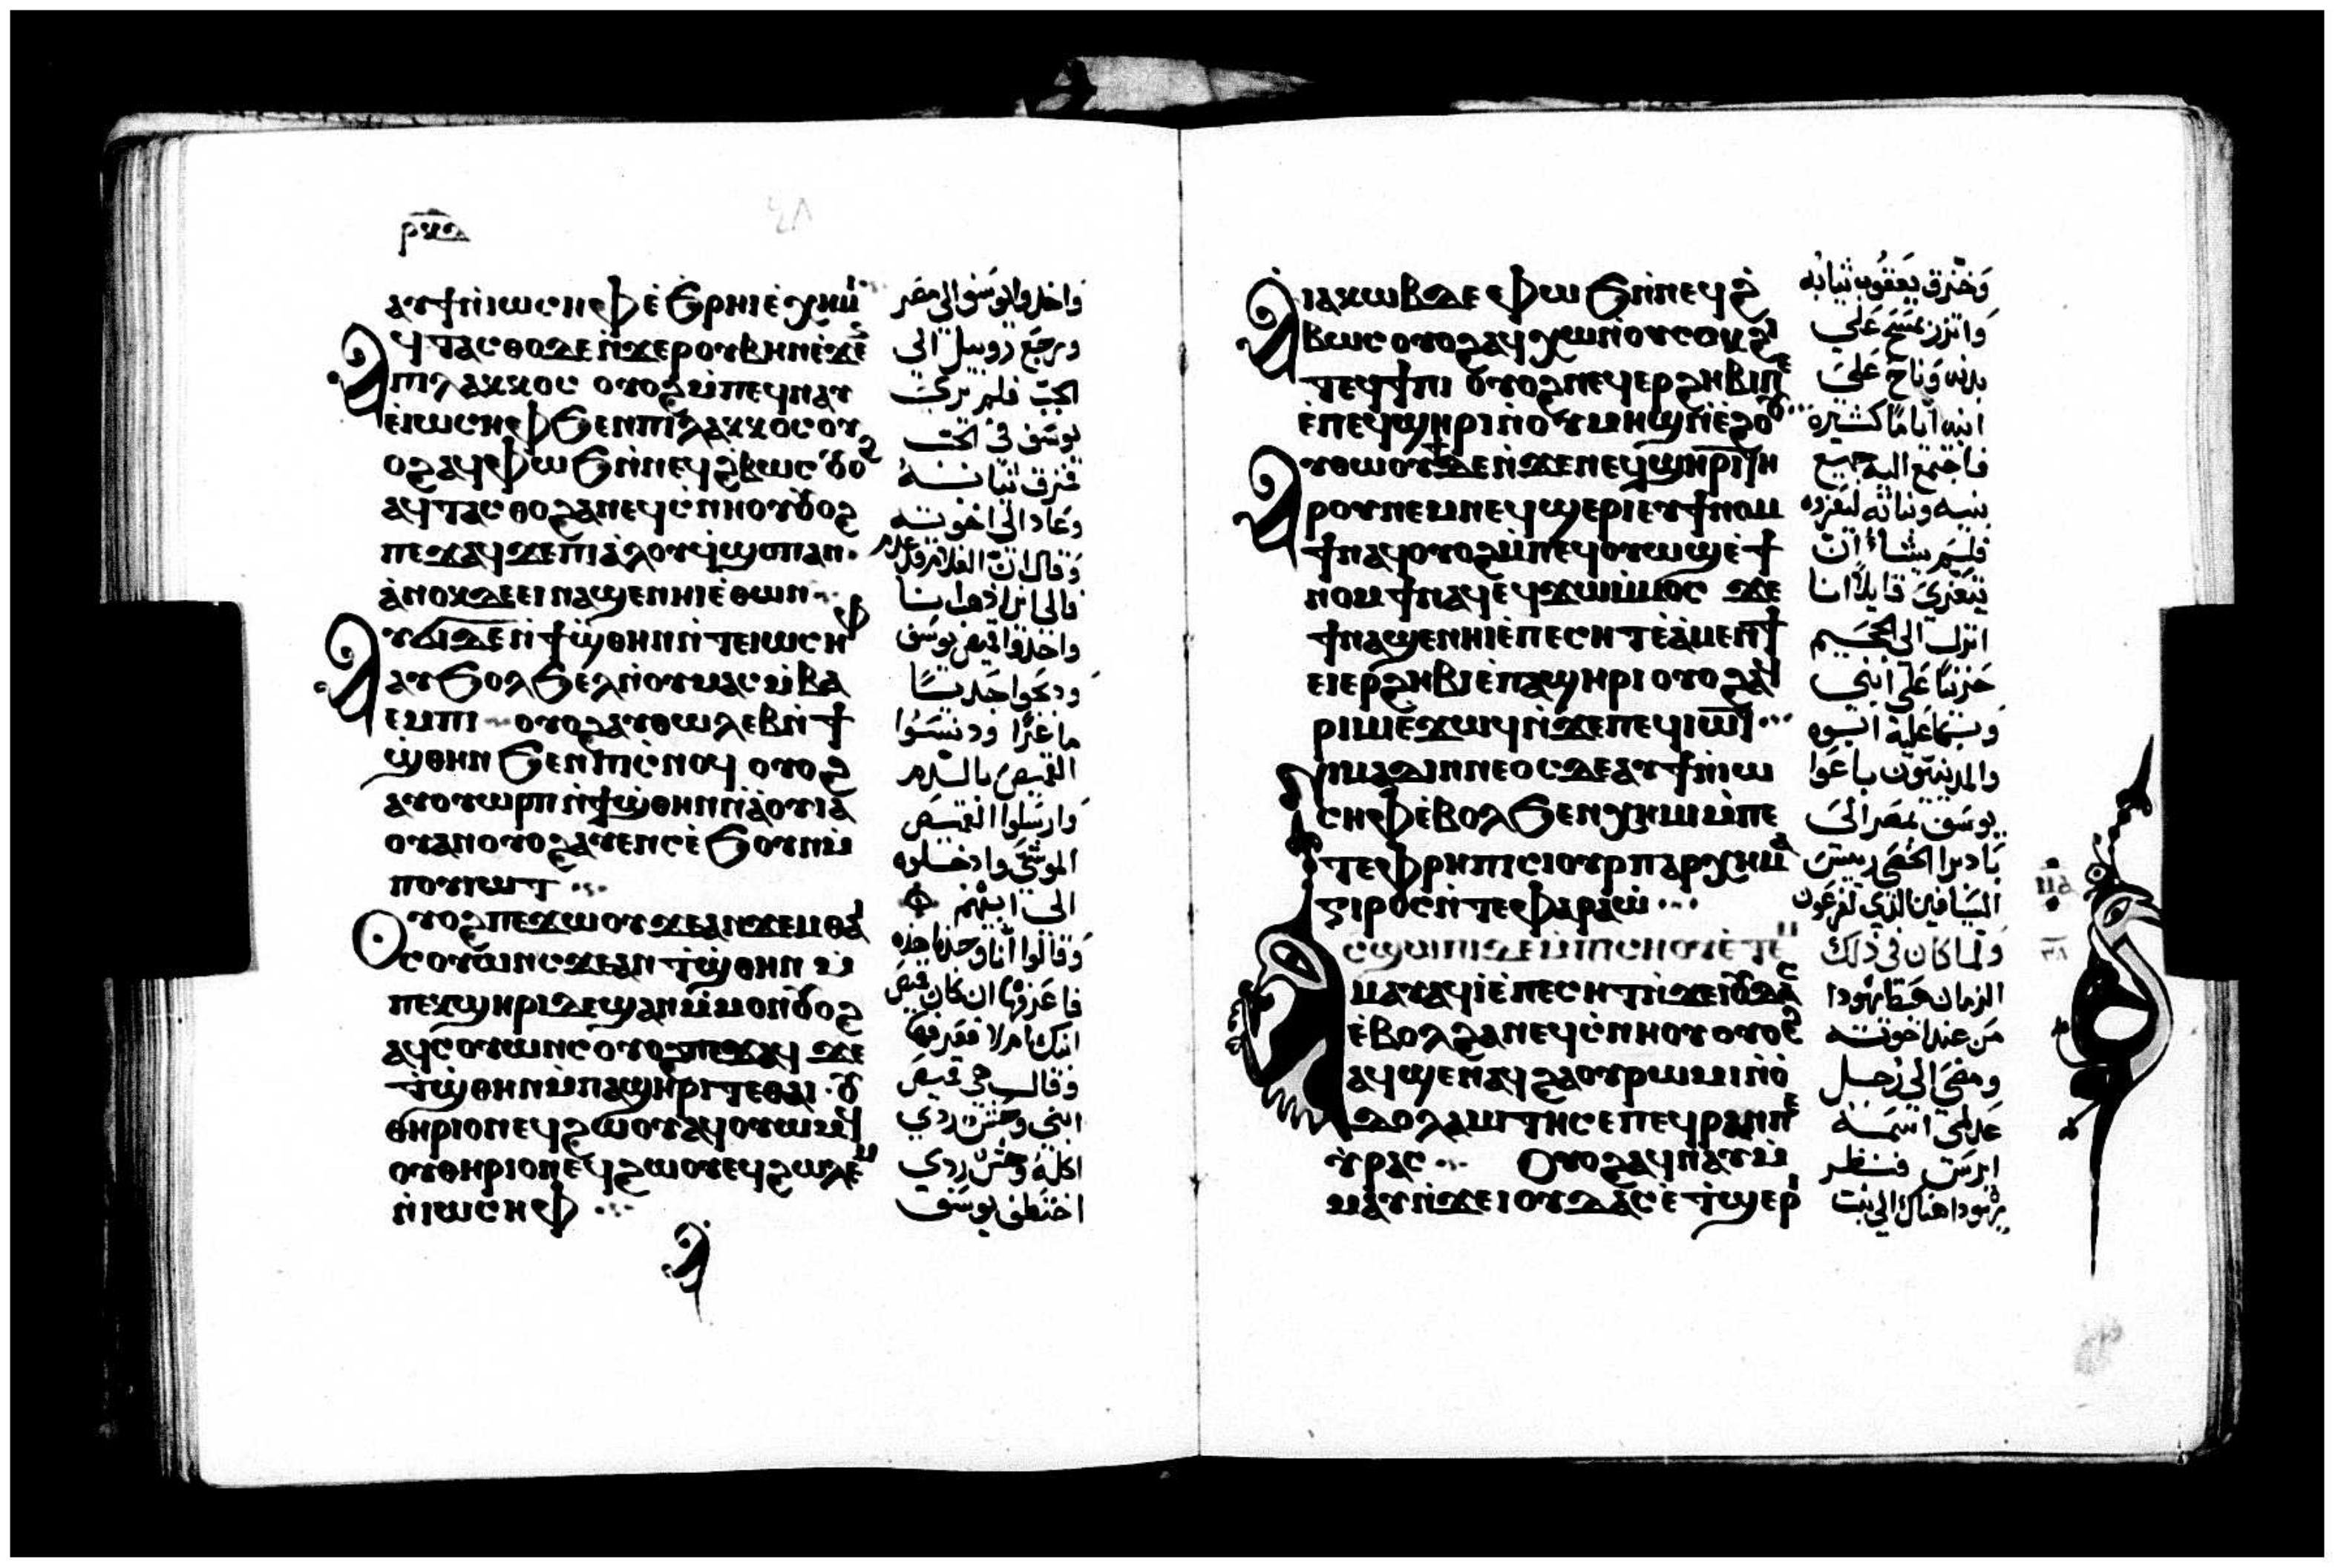 ⲁⲩϯⲛ̇ⲓⲱⲥⲏⲫ ⲉ̇ϧⲣⲏⲓ ⲉ̇ⲭⲏⲙⲓ
Ⲁϥⲧⲁⲥⲑⲟ ⲇⲉ ⲛ̇ϫⲉ ⲣⲟⲩⲃⲏⲛ ⲉ̇ϫⲉⲛ
ⲡⲓⲗⲁⲕⲕⲟⲥ ⲟⲩⲟϩ ⲙ̇ⲡⲉϥⲛⲁⲩ
ⲉ̇ⲓⲱⲥⲏⲫ ϧⲉⲛ ⲡⲓⲗⲁⲕⲕⲟⲥ ⲟⲩ
ⲟϩ ⲁϥⲫⲱϧ ⲛ̇ⲛⲉϥϩ̇ⲃⲱⲥ ⲟⲩⲟϩ
ⲁϥⲧⲁⲥⲑⲟ ϩⲁ ⲛⲉϥⲥ̇ⲛⲏⲟⲩ ⲟⲩⲟϩ
ⲡⲉϫⲁϥ ϫⲉ ⲡⲓⲁ̇ⲗⲟⲩ ϥ̇ϣⲟⲡ ⲁⲛ
ⲁ̇ⲛⲟⲕ ⲇⲉ ⲉⲓⲛⲁϣⲉ ⲛⲏⲓ ⲉ̇ⲑⲱⲛ
Ⲁⲩϭⲓ ⲇⲉ ⲛ̇ϯϣ̇ⲑⲏⲛ ⲛ̇ⲧⲉ ⲓⲱⲥⲏⲫ
ⲁⲩϧⲟⲗϧⲉⲗ ⲛ̇ⲟⲩⲙⲁⲥ ⲙ̇ⲃⲁ
ⲉⲙⲡⲓ ⲟⲩⲟϩ ⲁⲩⲑⲱⲗⲉⲃ ⲛ̇ϯ
ϣ̇ⲑⲏⲛ ϧⲉⲛ ⲡⲓⲥ̇ⲛⲟϥ ⲟⲩⲟϩ
ⲁⲩⲟⲩⲱⲣⲡ ⲛ̇ϯϣ̇ⲑⲏⲛ ⲛ̇ⲁⲟⲩⲓⲁ
ⲟⲩⲁⲛ ⲟⲩⲟϩ ⲁⲩⲉⲛⲥ ⲉ̇ϧⲟⲩⲛ ⲙ̇
ⲡⲟⲩⲓⲱⲧ
Ⲟⲩⲟϩ ⲡⲉϫⲱⲟⲩ ϫⲉ ⲁⲛϫⲉⲙ ⲑⲁⲓ
ⲥⲟⲩⲱⲛⲥ ϫⲉ ⲁⲛ ⲧ̇ϣⲑⲏⲛ ⲙ̇
ⲡⲉⲕϣⲏⲣⲓ ⲧⲉ ϣⲁⲛ ⲙ̇ⲙⲟⲛ ⲟⲩⲟϩ
ⲁϥⲥⲟⲩⲱⲛⲥ ⲟⲩⲟϩ ⲡⲉϫⲁϥ ϫⲉ
ⲧ̇ϣ̇ⲑⲏⲛ ⲙ̇ⲡⲁϣⲏⲣⲓ ⲧⲉ ⲑⲁⲓ ⲟⲩ
ⲑⲏⲣⲓⲟⲛ ⲉϥϩⲱⲟⲩ ⲁϥⲟⲩⲱⲙϥ
ⲟⲩⲑⲏⲣⲓⲟⲛ ⲉϥϩⲱⲟⲩ ⲉϥϩⲱⲗⲉⲙ
ⲛ̇ⲓⲱⲥⲏⲫ
واخدوا يوسف الى مصر
ورجع روبيل الى
الجب فلم يرى
يوسف في الجب
فمزق ثيابه
وعاد الى اخوته
وقال ان الغلام قد عدم
فالى اين اذهب انا
واخذوا قميص يوسف
وذبحوا جديا
ماعزا ودنسوا
القميص بالدم
وارسلوا القميص
الموشى وادخلوه
الى ابيهم
وقالوا اننا وجدنا هذه
فاعرفها ان كان قميص
ابنك ام لا فعرفها
وقال هي قميص
ابني وحش ردي
اكله وحش ردي
اختطف يوسف
Ⲁ ⲓⲁⲕⲱⲃ ⲇⲉ ⲫⲱϧ ⲛ̇ⲛⲉϥϩ̇
ⲃⲱⲥ ⲟⲩⲟϩ ⲁϥϭⲱⲛ ⲟⲩⲥⲟⲕ ϩⲓ
ⲧⲉϥϯⲡⲓ ⲟⲩⲟϩ ⲛⲉϥⲉⲣϩⲏⲃⲓ ⲡⲉ
ⲉ̇ⲡⲉϥϣⲏⲣⲓ ⲛ̇ⲟⲩⲙⲏϣ ⲛ̇ⲉ̇ϩⲟⲟⲩ
Ⲁⲩⲑⲱⲟⲩϯ ⲇⲉ ⲛ̇ϫⲉ ⲛⲉϥϣⲏⲣⲓ ⲧⲏ
ⲣⲟⲩ ⲛⲉⲙ ⲛⲉϥϣⲉⲣⲓ ⲉⲩϯⲛⲟⲙ
ϯ ⲛⲁϥ ⲟⲩⲟϩ ⲙ̇ⲡⲉϥⲟⲩⲱϣ ⲉ̇ϯ
ⲛⲟⲙϯ ⲛⲁϥ ⲉϥϫⲱ ⲙ̇ⲙⲟⲥ ϫⲉ
ϯⲛⲁϣⲉ ⲛⲏⲓ ⲉ̇ⲡⲉⲥⲏⲧ ⲉ̇ⲁⲙⲉⲛϯ
ⲉⲓⲉⲣϩⲏⲃⲓ ⲉ̇ⲡⲁϣⲏⲣⲓ ⲟⲩⲟϩ ⲁϥ
ⲣⲓⲙⲓ ⲉϫⲱϥ ⲛ̇ϫⲉ ⲡⲉϥⲓⲱⲧ
Ⲛⲓⲙⲁⲇⲓⲛⲛⲉⲟⲥ ⲇⲉ ⲁⲩϯ ⲛ̇ⲓⲱ
ⲥⲏⲫ ⲉ̇ⲃⲟⲗ ϧⲉⲛ ⲭⲏⲙⲓ ⲙ̇ⲡⲉ
ⲧⲉⲫⲣⲏ ⲡⲓⲥⲓⲟⲩⲣ ⲡⲁⲣⲭⲏⲙⲁ
ⲅⲓⲣⲟⲥ ⲛ̇ⲧⲉ ⲫⲁⲣⲁⲱ
Ⲁⲥϣⲱⲡⲓ ⲇⲉ ⲙ̇ⲡⲓⲥⲏⲟⲩ ⲉ̇ⲧⲉⲙ
ⲙⲁⲩ ⲁϥⲓ̇ ⲉ̇ⲡⲉⲥⲏⲧ ⲛ̇ϫⲉ ⲓⲟⲩⲇⲁⲥ
ⲉ̇ⲃⲟⲗ ϩⲁ ⲛⲉϥⲥ̇ⲛⲏⲟⲩ ⲟⲩⲟϩ
ⲁϥϣⲉ ⲛⲁϥ ϩⲁ ⲟⲩⲣⲱⲙⲓ ⲛ̇ⲟ̇
ⲇⲟⲗⲁⲙⲓⲧⲏⲥ ⲉ ⲡⲉϥⲣⲁⲛ ⲡⲉ
ⲓ̇ⲣⲁⲥ Ⲟⲩⲟϩ ⲁϥⲛⲁⲩ ⲙ̇
ⲙⲁⲩ ⲛ̇ϫⲉ ⲓⲟⲩⲇⲁⲥ ⲉ̇ⲧ̇ϣⲉⲣⲓ
وخرق يعقوب ثيابه
واتزر بمسح على
بدنه وناح على
ابنه اياما كثيره
فاجتمع اليه جميع
بنيه وبناته ليعزوه
فلم يشاء ان
يتعزى قايلا انا
انزل الى الجحيم
حزينا على ابني
وبكا عليه ابوه
والمدينيون باعوا
يوسف بمصر الى
الخصي رييس
السيافين الذي لفرعون
ولما كان في ذلك
الزمان هبط يهودا
من عند اخوته
ومضى الى رجل
عدلمي اسمه
ايرس فنظر
يهودا هناك الى بنت